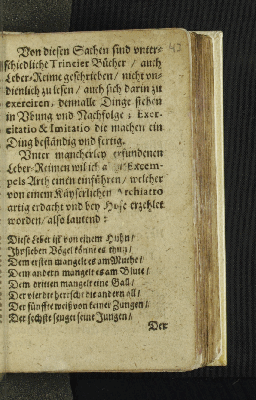 42
Von diesen Sachen sind unter-
schiedliche Trincier Bücher / auch
Leber-Reime geschrieben / nicht un-
dienlich zu lesen / auch sich darin zu
exerciren, dennalle Dinge stehen
in Ubung und Nachfolge; Exer-
citatio & Imitatio die machen ein
Ding beständig und fertig.
Unter mancherley erfundenen
Leber-Reimen wil ich Exem-
pels Arth einen einführen / welcher
von einem Käyserlichen Archiatro
artig erdacht und bey Hofe erzehlet
worden / also lautend:
Diese Leber ist von einem Huhn /
Ihr sieben Vögel könnt es thun /
Dem ersten mangelt es am Muthe /
Dem andern mangelt es am Blute /
Dem dritten mangelt eine Gall /
Der vierdte herrscht die andern all /
Der fünffte weiß von keiner Zungen /
Der sechste seuget seine Jungen /
Der